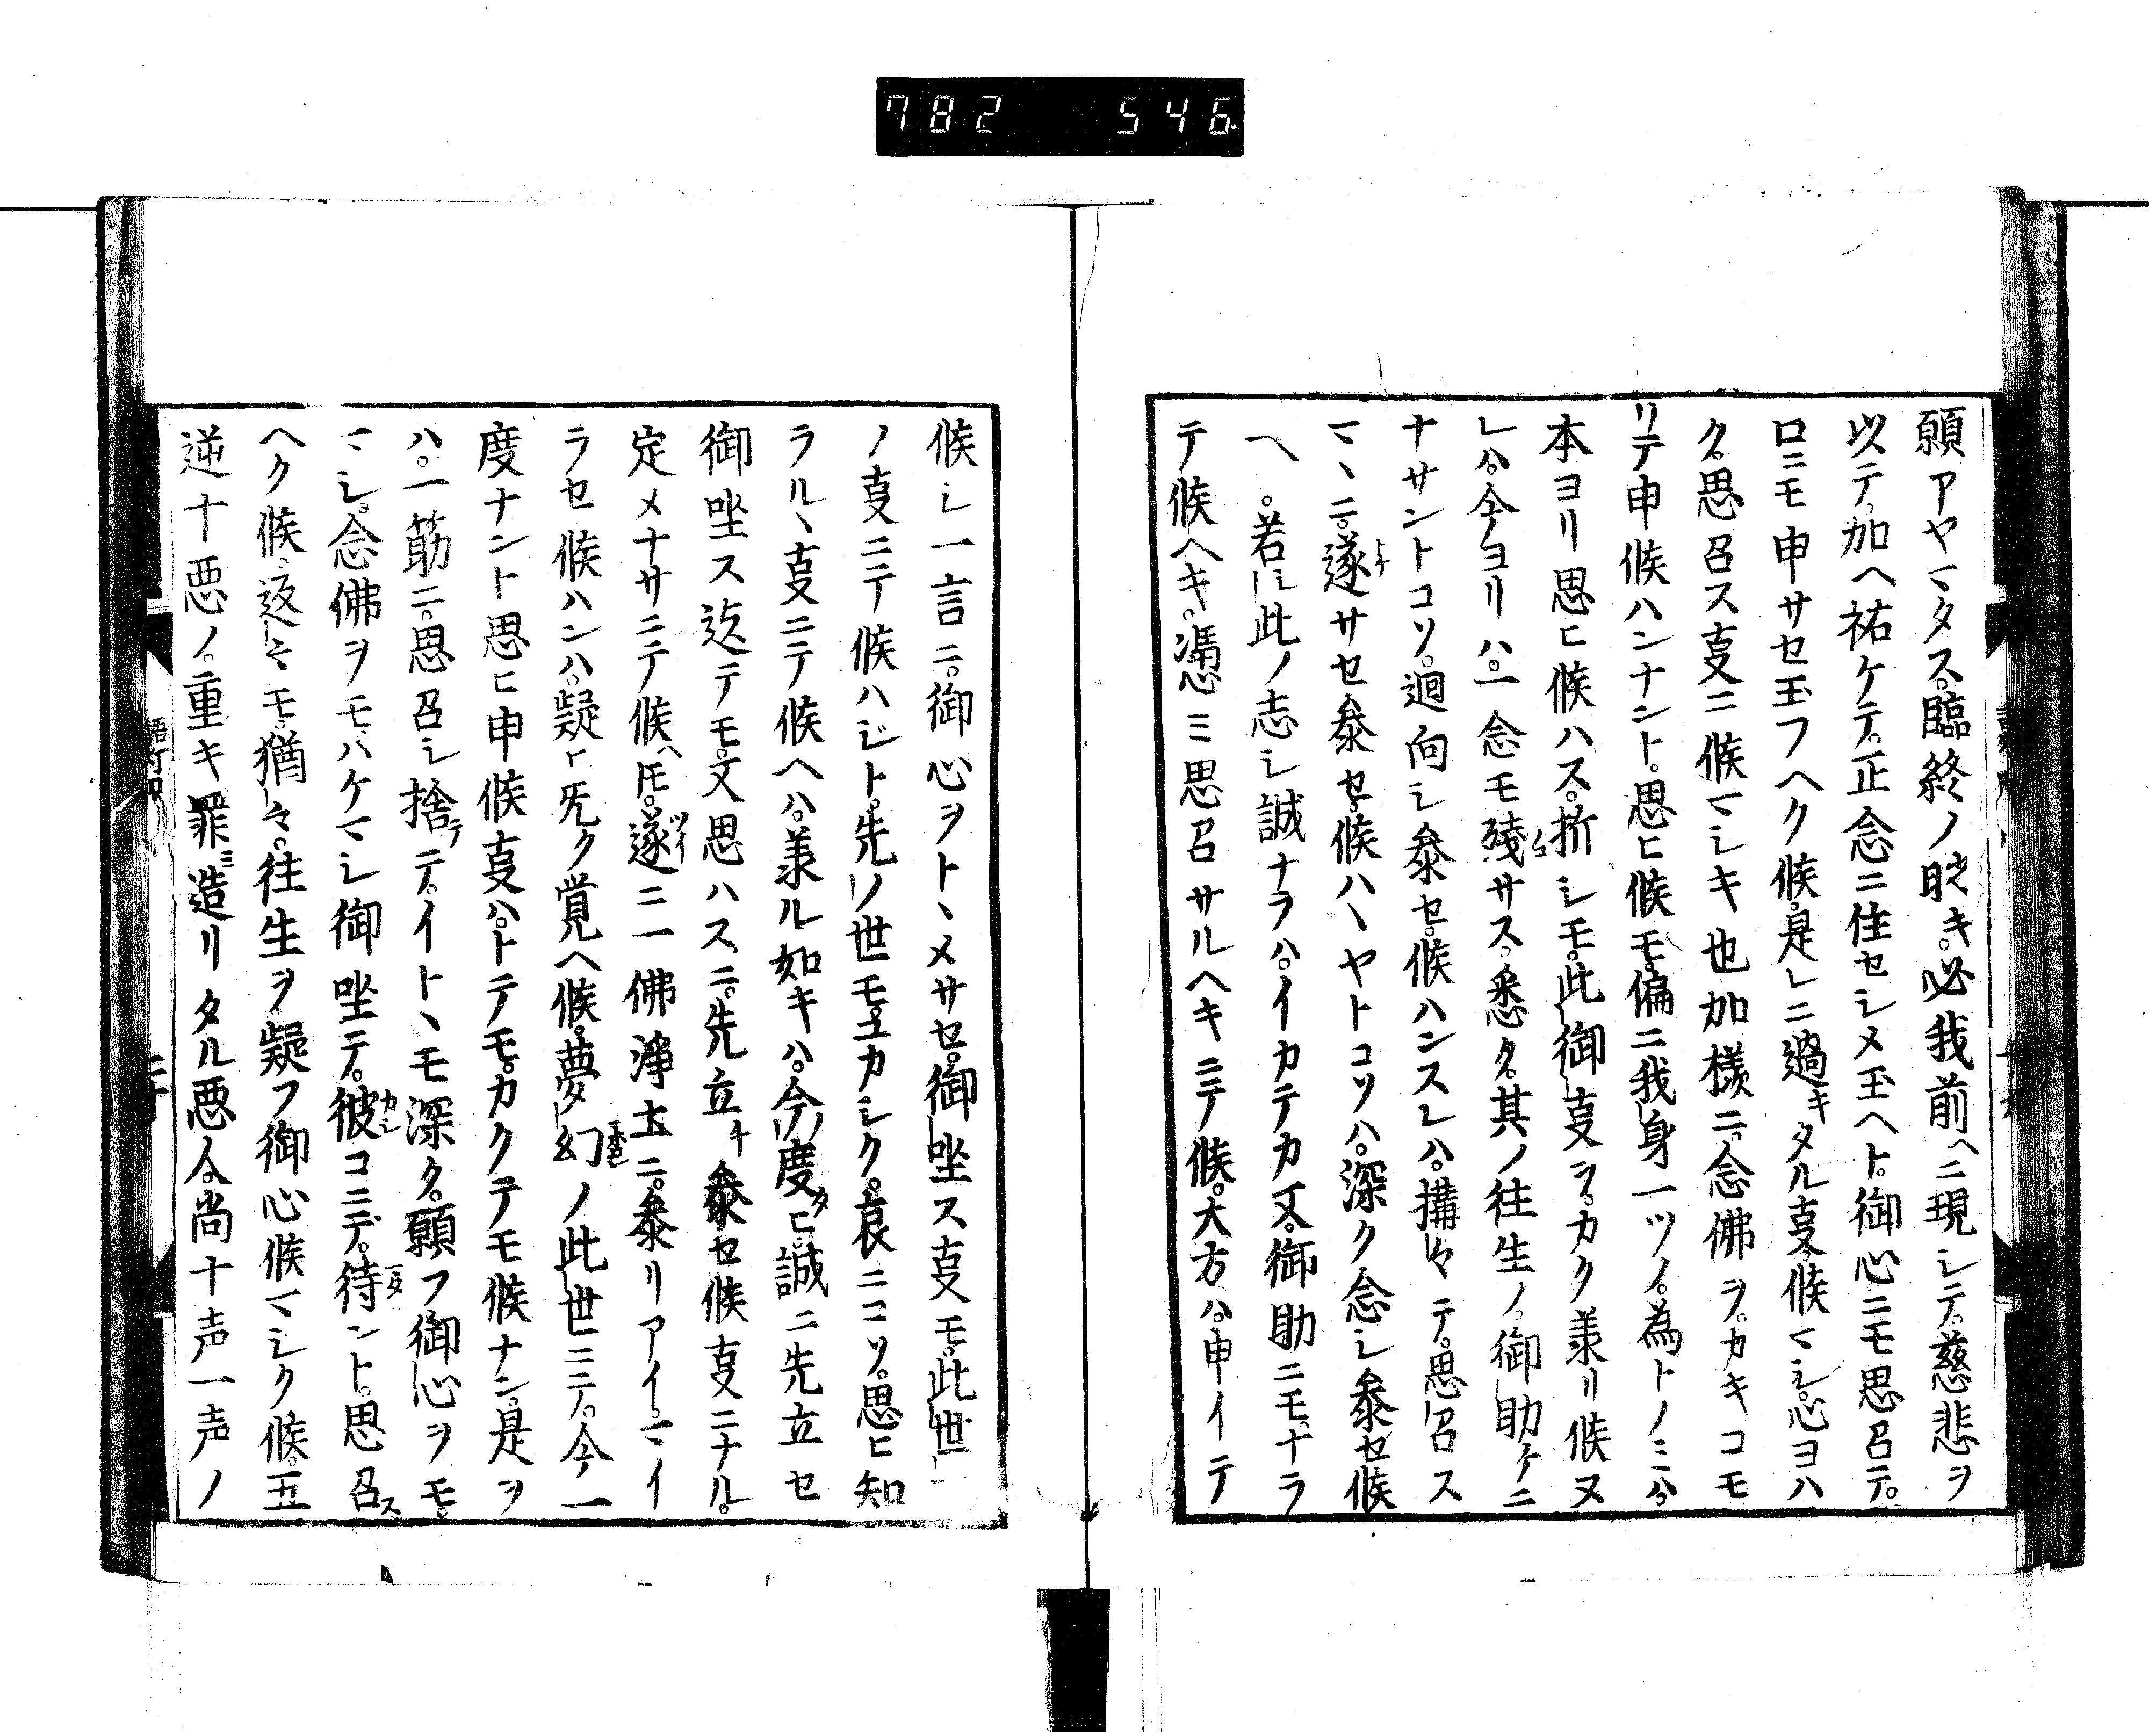 782 546
願アヤマタス。臨終ノ時キ。必我前ヘニ現シテ。慈悲ヲ
以テ。加ヘ祐ケテ。正念ニ住セシメ玉ヘト。御心ニモ思召テ。
口ニモ申サセ玉フヘク候。是レニ過キタル叓候マシ。心ヨハ
ク。思召ス叓ニ候マシキ也加様ニ。念佛ヲ。カキコモ
リテ申候ハンナント。思ヒ候モ。偏ニ我身一ツノ。為トノミハ。
本ヨリ思ヒ候ハス。折シモ。此御叓ヲ。カク羕リ候ヌ
レハ。今ヨリハ。一念モ殘サス。悉ク。其ノ往生ノ。御助ケニ
ナサントコソ。迴向シ叅セ。候ハンスレハ。構々テ。思召ス
マヽニ。遂サセ叅セ。候ハヽヤトコソハ。深ク念シ叅セ候
ヘ。若シ此ノ志シ誠ナラハ。イカテカ又。御助ニモ。ナラ
テ候ヘキ。憑ミ思召サルヘキニテ候。大方ハ。申イテ
候シ一言ニ。御心ヲトヽメサセ。御坐ス叓モ。此世一
ノ叓ニテ候ハジト。先ノ世モ。ユカシク。哀ニコソ。思ヒ知
ラルヽ叓ニテ候ヘハ。羕ル如キハ。今度タヒ。誠ニ先立セ
御坐ス迄テモ。又思ハスニ。先立チ叅セ候叓ニナル。
定メナサニテ候ヘ𪜈。遂ニ一佛淨土ニ。叅リアイマイ
ラセ候ハンハ。疑ヒ旡ク覚ヘ候。夢幻ノ此世ニテ。今一
度ナント思ヒ申候叓ハ。トテモ。カクテモ候ナン。是ヲ
ハ。一筋ニ。思召シ捨テテ。イトヽモ深ク。願フ御心ヲモ。
マシ。念佛ヲモ。ハケマシ御坐テ。彼コニデ。待ント。思召ス
ヘク候。返々モ。猶々。往生ヲ疑フ御心候マシク候。五
逆十悪ノ。重キ罪ミ造リタル悪人。尚十声一声ノ